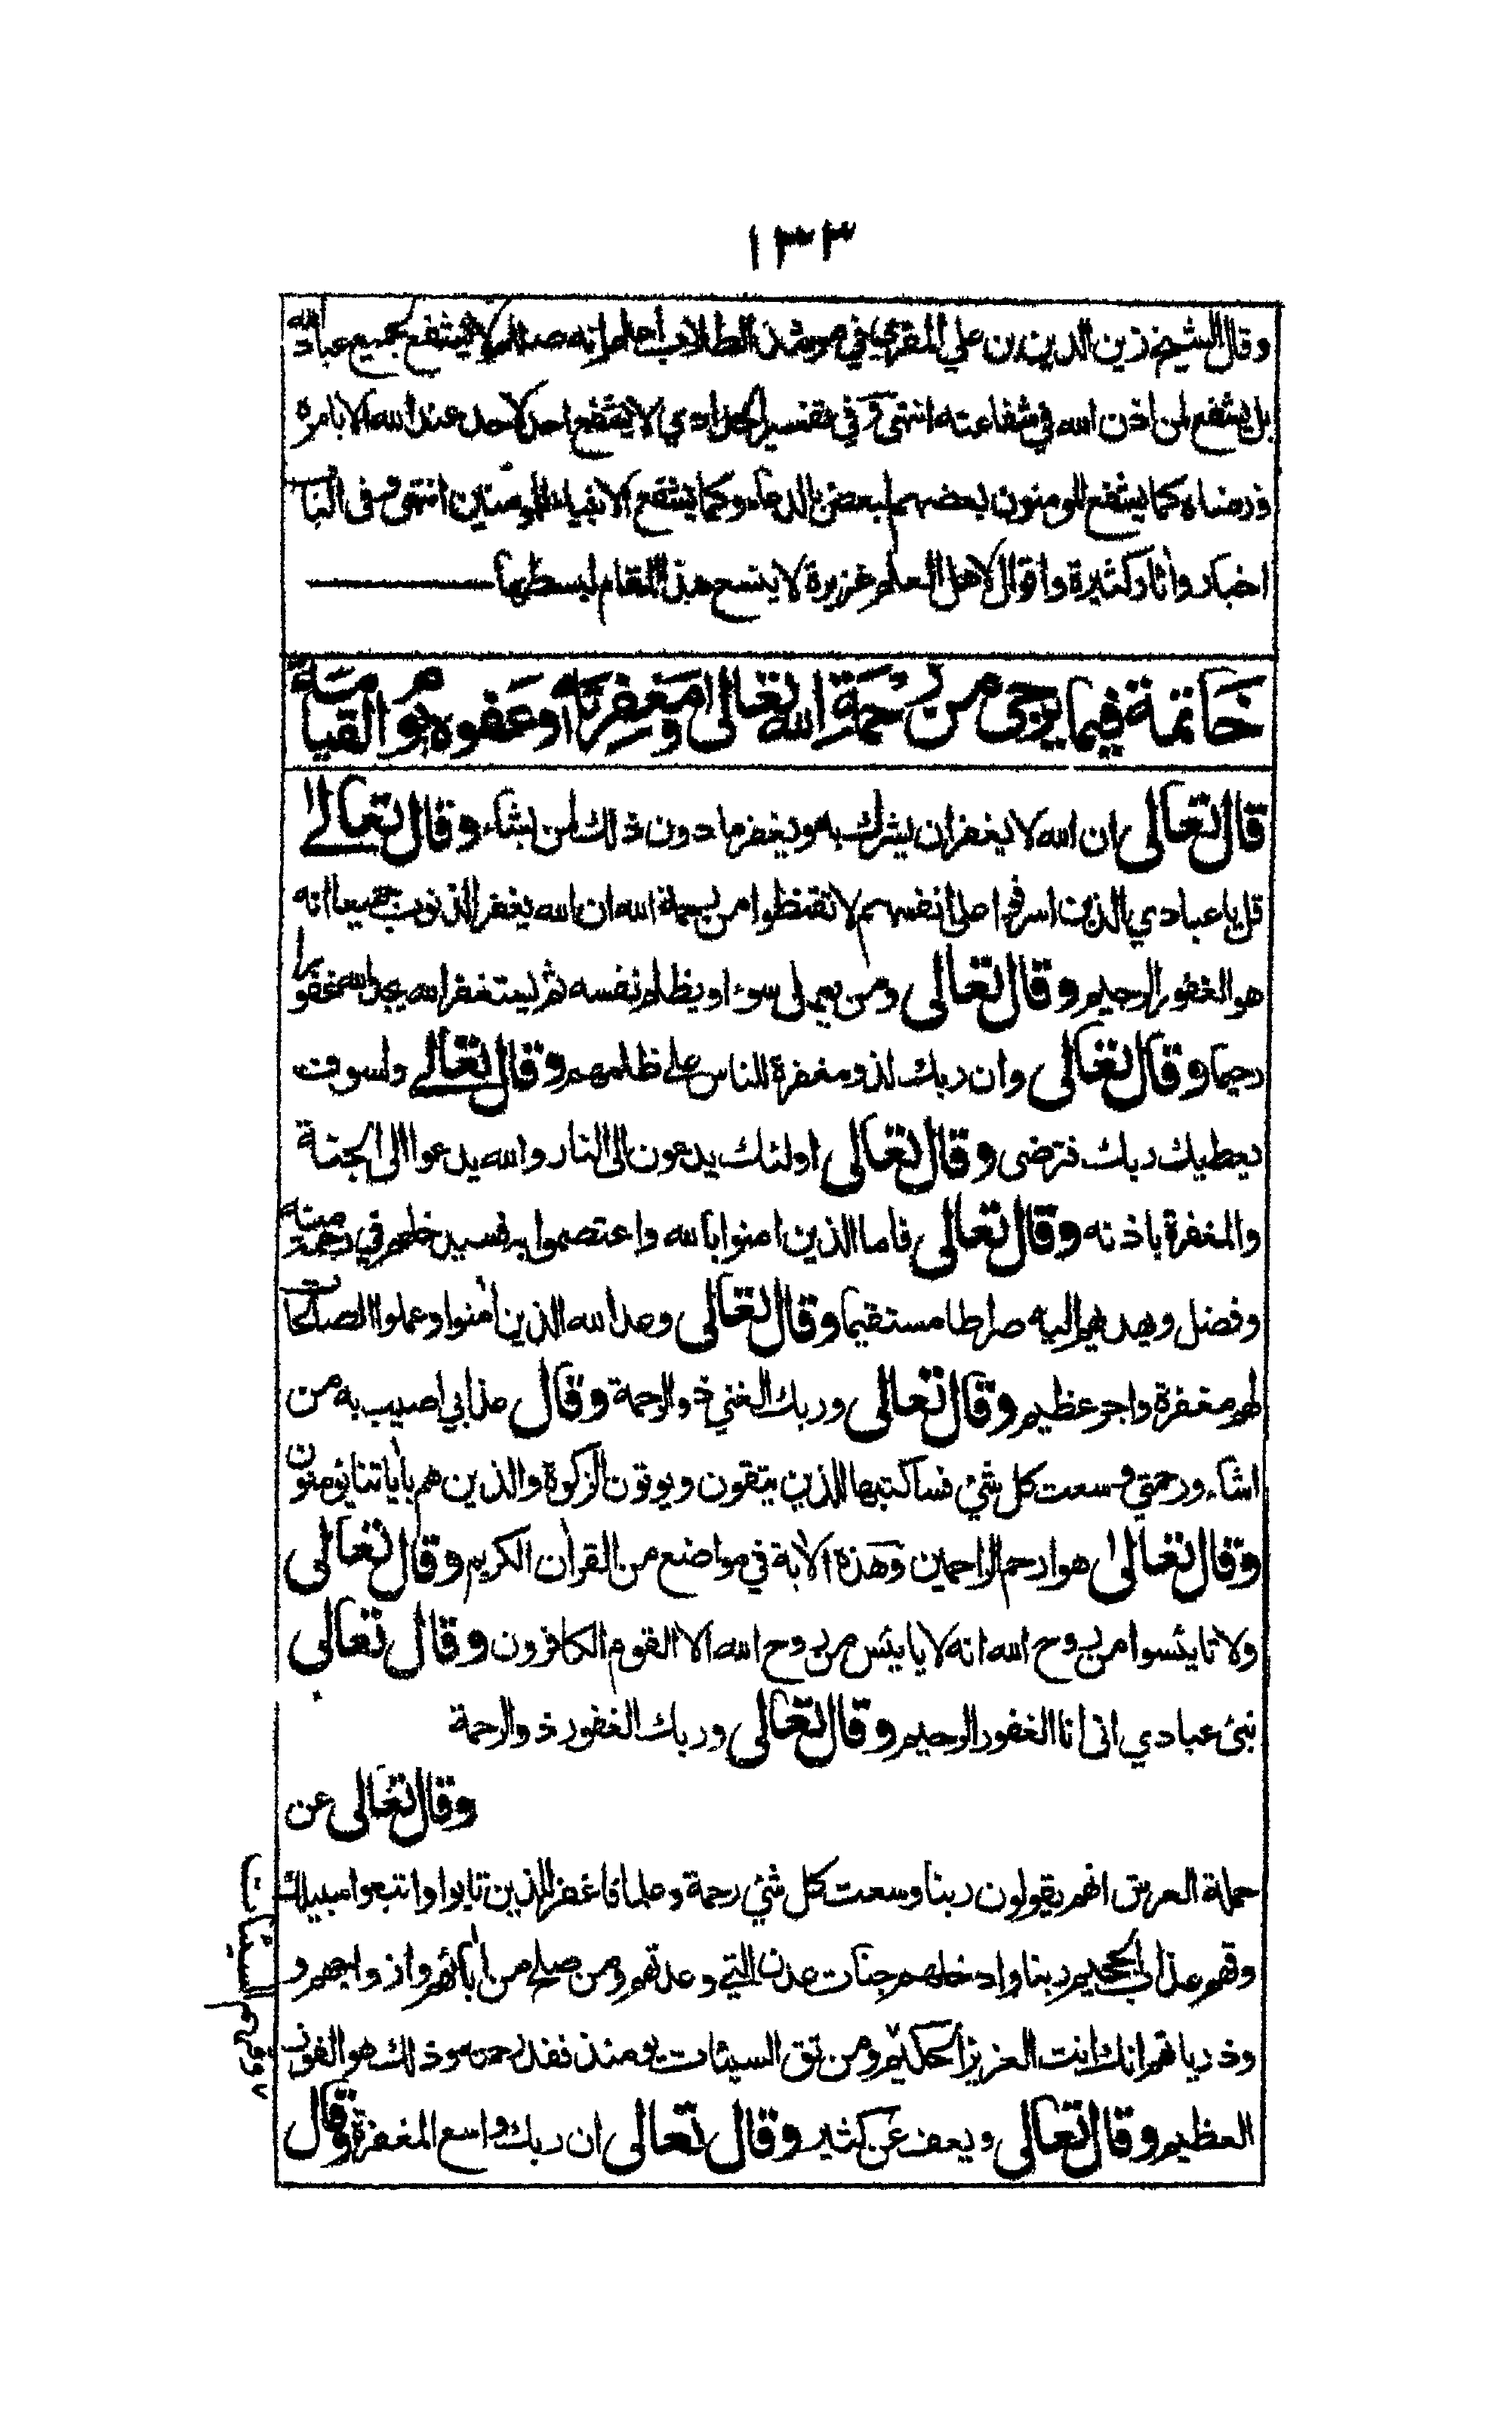 ١٣٣
وقال الشيخ زين الدين بن علي المقري في مرشد الطلاب اعلم انه صلعم لا يشفع بجميع عباد الله
بل يشفع لمن اذن الله في شفاعته انتهى وفي تفسير الحدادي لا يشفع احد لاحد عند الله الا بامره
ورضاه كما يشفع المومنون بعضهم لبعض بالدعاء وكما يشفع الانبياء للمومنين انتهى وفى الباب
اخبار واثار كثيرة واقوال لاهل العلم غزيرة لا يتسع هذا المقام لبسطها
خاتمة فيما يرجى من رحمة الله تعالى ومغفرته وعفوه يوم القيامة
قال تعالى ان الله لا يغفر ان يشرك به ويغفر ما دون ذلك لمن يشاء وقال تعالى
قل يا عبادي الذين اسرفوا على انفسهم لا تقنطوا من رحمة الله ان الله يغفر الذنوب جميعا انه
هو الغفور الرحيم وقال تعالى ومن يعمل سوء او يظلم نفسه ثم يستغفر الله يجد الله غفورا
رحيما وقال تعالى وان ربك لذو مغفرة للناس على ظلمهم وقال تعالى ولسوف
يعطيك ربك فترضى وقال تعالى اولئك يدعون الى النار والله يدعوا الى الجنة
والمغفرة باذنه وقال تعالى فاما الذين امنوا بالله واعتصموا به فسيدخلهم في رحمة منه
وفضل ويهديهم اليه صراطا مستقيما وقال تعالى وعد الله الذين امنوا وعملوا الصالحات
لهم مغفرة واجر عظيم وقال تعالى وربك الغني ذو الرحمة وقال عذابي اصيب به من
اشاء ورحمتي وسعت كل شئ فساكتبها للذين يتقون ويوتون الزكوة والذين هم باياتنا يؤمنون
وقال تعالى هو ارحم الراحمين وهذه الاية في مواضع من القران الكريم وقال تعالى
ولا تايئسوا من روح الله انه لا يايئس من روح الله الا القوم الكافرون وقال تعالى
نبئ عبادي انى انا الغفور الرحيم وقال تعالى وربك الغفور ذو الرحمة
وقال تعالى عن
حملة العرش انهم يقولون ربنا وسعت كل شئ رحمة وعلما فاغفر للذين تابوا واتبعوا سبيلك
وقهم عذاب الجحيم ربنا وادخلهم جنات عدن التي وعدتهم ومن صلح من ابائهم وازواجهم و
وذرياتهم انك انت العزيز الحكيم ومن تق السيئات يومئذ فقد رحمته وذلك هو الفوز
العظيم وقال تعالى ويعف عن كثير وقال تعالى ان ربك واسع المغفرة وقال
وقهم السيئات